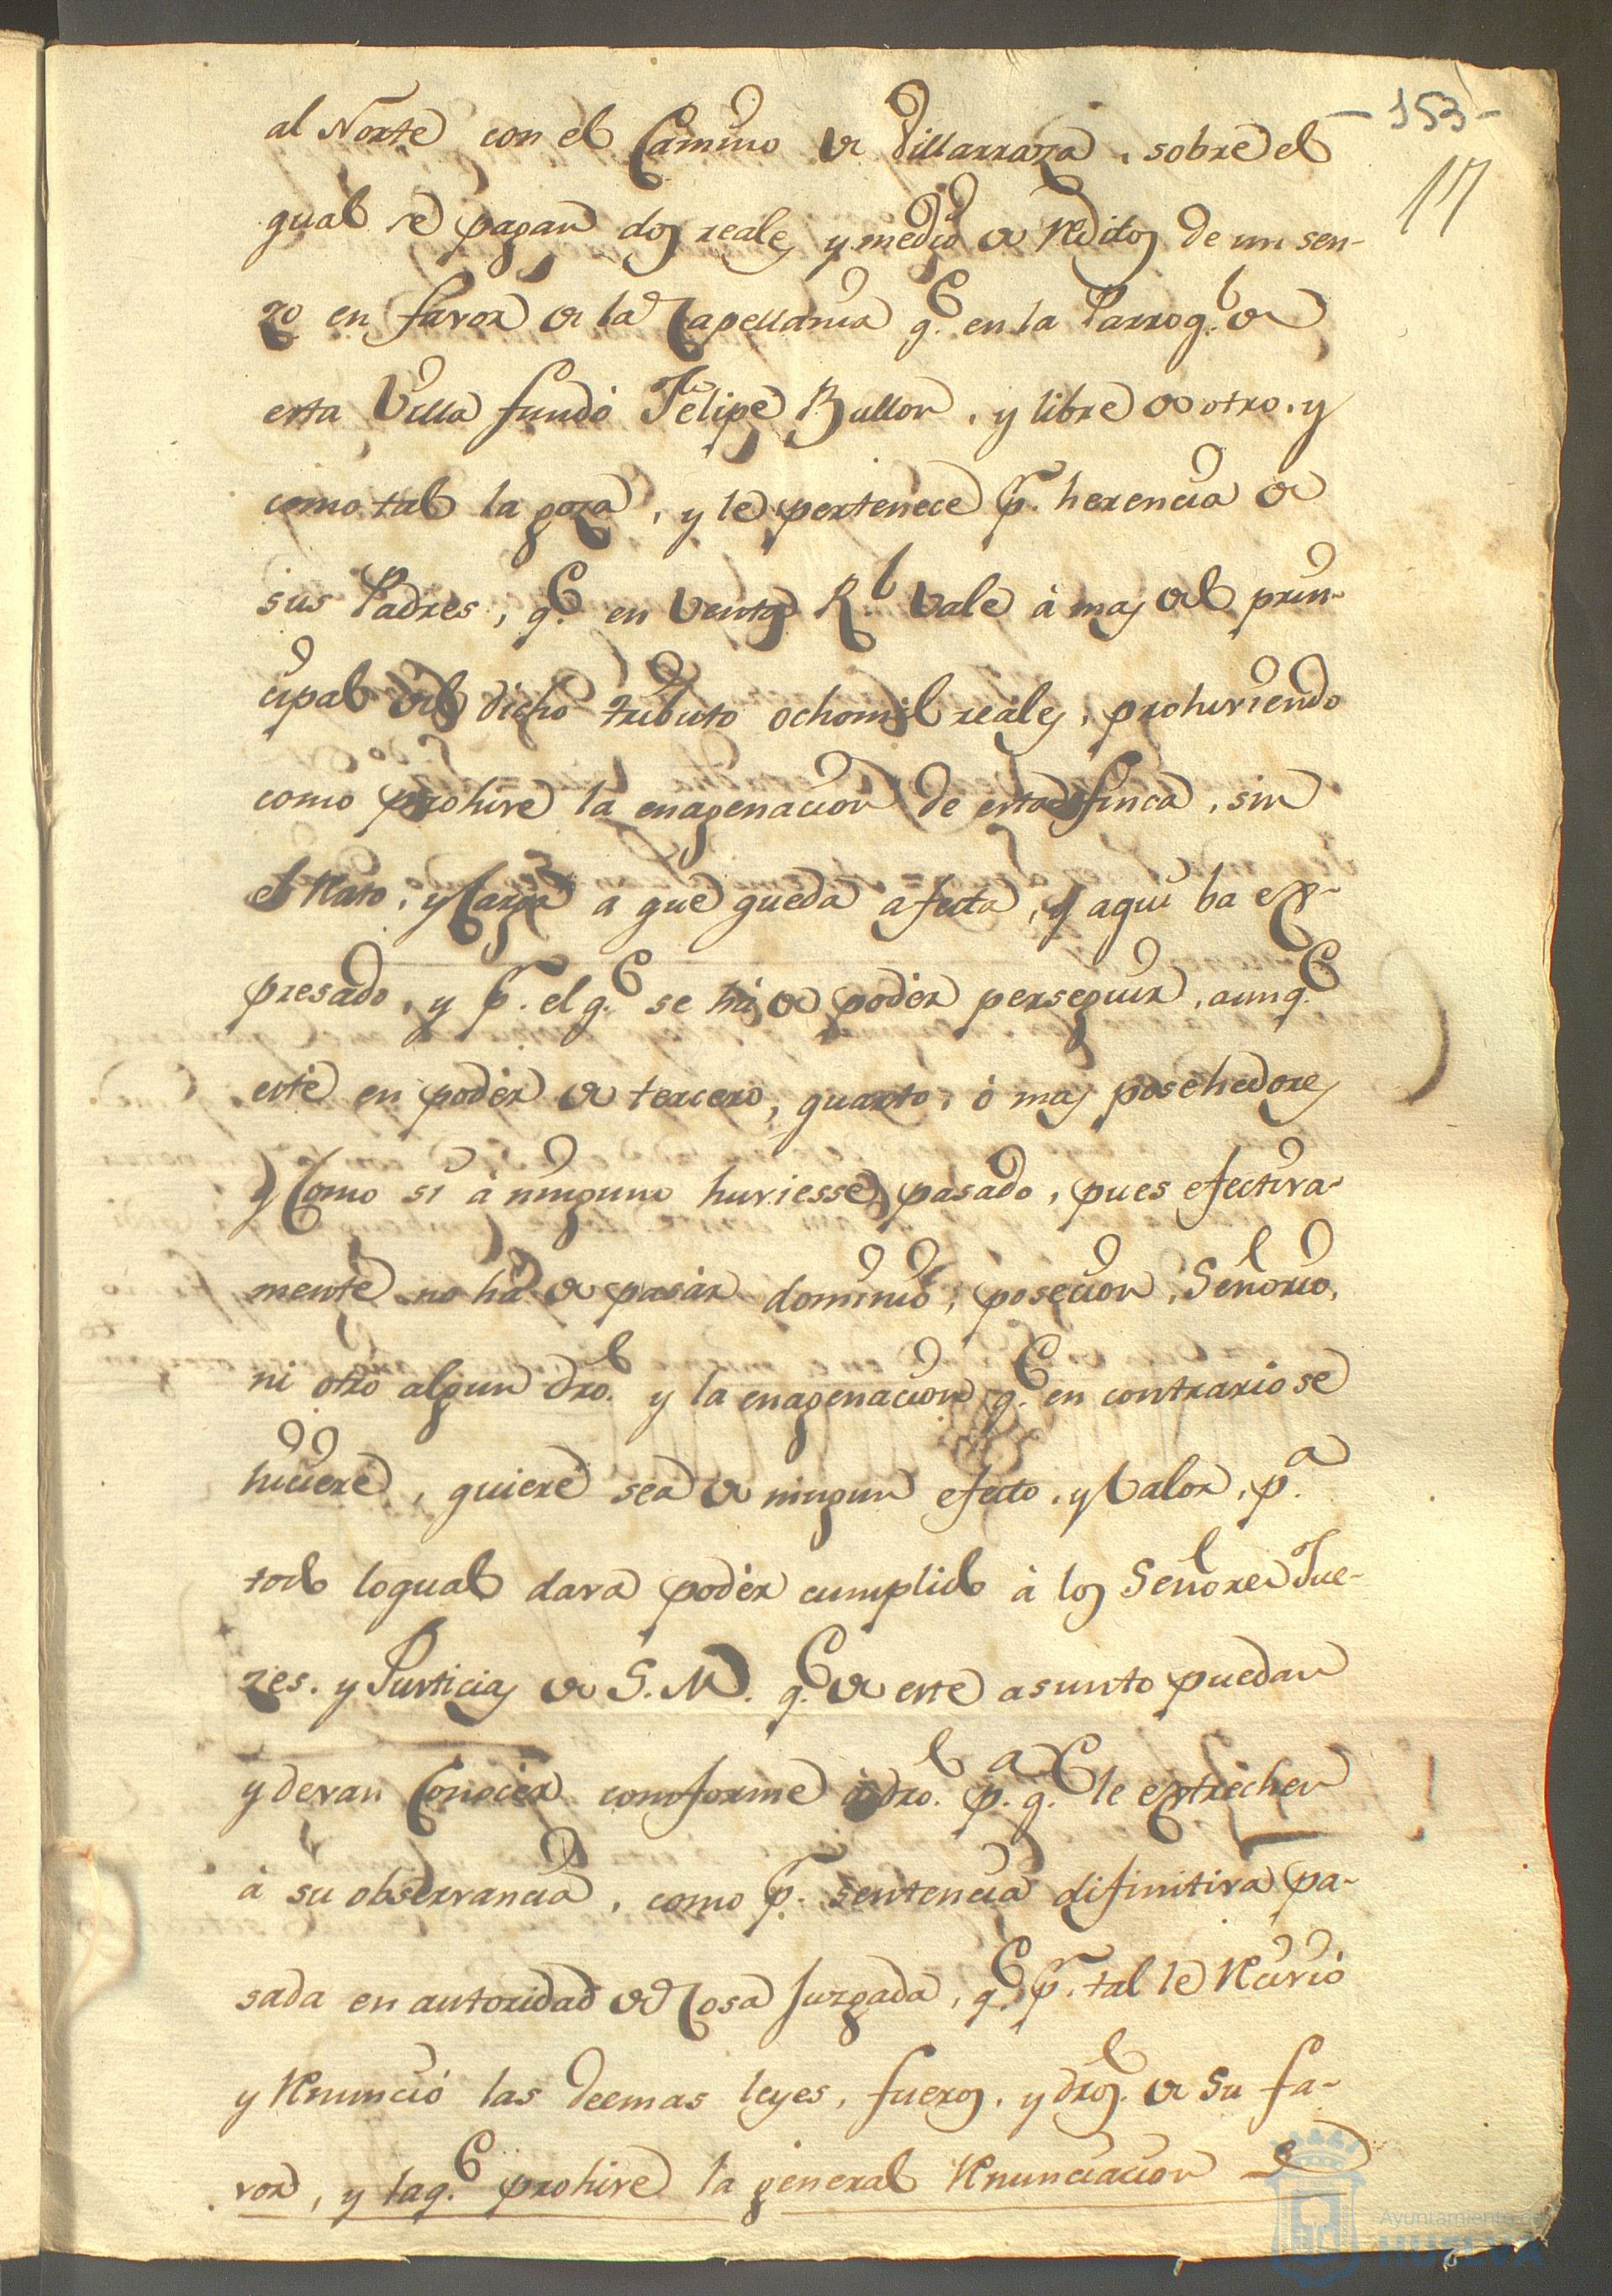 - 153 -
17
al Norte con el Camino de Villarraza, sobre el
qual se pagan dos reales y medio de Reditos de un sen-
zo en favor de la Capellania q.e en la Parroq.l de
esta Villa fundò Felipe Bullon, y libre de otro, y
como tal la goza, y le pertenece p.r herencia de
sus Padres, q.e en Venta R.l Vale à mas del prin-
cipal del dicho tributo ochomil reales, prohiviendo
como prohive la enagenacion de esta finca, sin
el Nato, y Carga a que queda afecta, y aqui ba ex-
presado, y p.r el q.e se ha de poder perseguir, aunq.e
estè en poder de tercero, quarto, ò mas posehedores
y Como si à ninguno huviesse pasado, pues efectiva-
mente no ha de pasar dominio, posecion, Señorio,
ni otro algun dro. y la enagenacion q.e en contrario se
hiciere, quiere sea de ningun efecto, y Valor, p.a
todo loqual dava poder cumplido à los Señores Jue-
zes, y Justicias de S. M. q.e de este asunto puedan
y devan Conocer conforme à dro. p.a q.e le extrechen
à su observancia, como p.r sentencia difinitiva pa-
sada en autoridad de Cosa Juzgada, q.e p.r tal le Recivio
y Renunciò las deemas leyes, fueros, y dros. de Su fa-
vor, y la q.e prohive la general Renunciacion
Ayuntamiento de
HUELVA